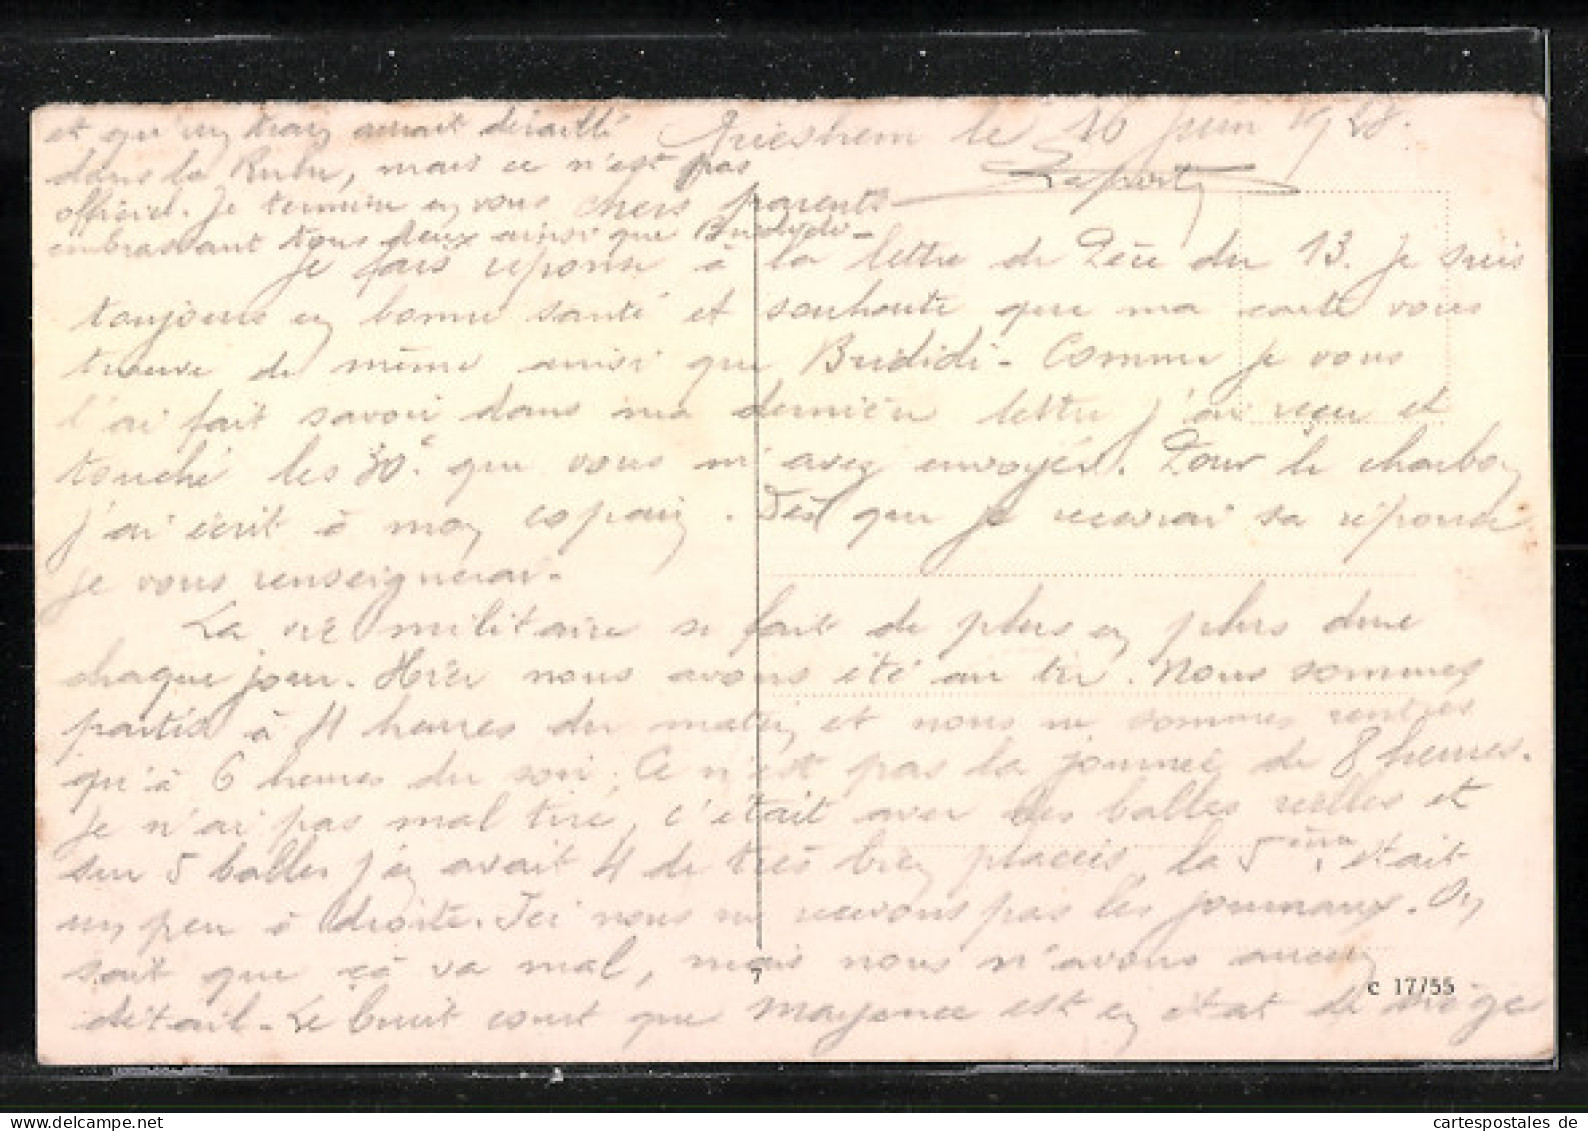 Griesheim le 16 Juin 192
Laporte
chers parents
Je fais réponse à la lettre de du 13. Je suis
toujours en bonne santé et souhaite que ma carte vous
trouve de même ainsi que Brididi - Comme je vous
l'ai fait savoir dans ma dernière lettre j'ai reçu et
touché les 30 que vous m'avez envoyés. Pour le charbon
j'ai écrit à mon copain. Dès que je recevrai sa réponse
je vous renseignerai -
La vie militaire se fait de plus en plus dure
chaque jour. Hier nous avons été au tir. Nous sommes
partis à 4 heures du matin et nous ne sommes rentrés
qu'à 6 heures du soir. Ce n'est pas la journée de 8 heures.
Je n'ai pas mal tiré, c'était avec des balles réelles et
sur 5 balles j'en avait 4 de très bien placées, la 5ème était
un peu à droite. Ici nous ne recevons pas les journaux. On
sait que ça va mal, mais nous n'avons aucun
détail - Le bruit court que Mayence est en état de siège
et qu'un train aurait déraillé
dans la Ruhr, mais ce n'est pas
officiel. Je termine en vous
embrassant tous deux ainsi que Bridydi -
7
C 17/55
cartespostales de